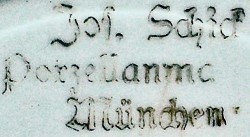 Jos. Schid
Porzellanma
München